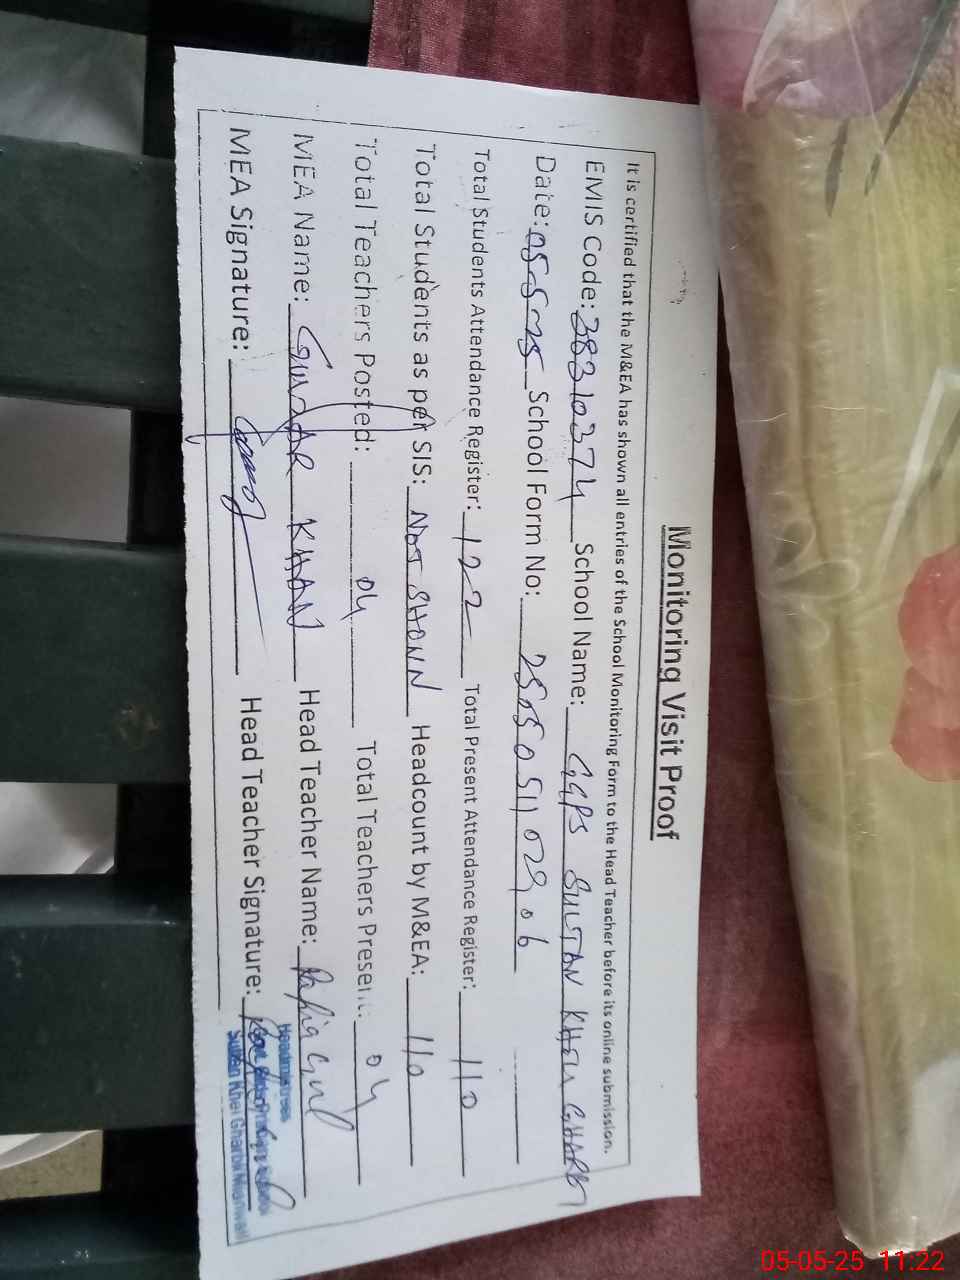 Monitoring Visit Proof
It is certified that the M&EA has shown all entries of the School Monitoring Form to the Head Teacher before its online submission.
EMIS Code: 38310374 School Name: GGPS SULTAN KHEL GHARBI
Date: 05-5-25 School Form No: 2505051102906
Total Students Attendance Register: 122 Total Present Attendance Register: 110
Total Students as per SIS: NOT SHOWN Headcount by M&EA: 110
Total Teachers Posted: 04 Total Teachers Present: 04
MEA Name: GULZAR KHAN Head Teacher Name: Rafia Gul
MEA Signature: Head Teacher Signature:
Headmistress
Govt. Girls Primary School
Sultan Khel Gharbi Mianwali
05-05-25 11:22